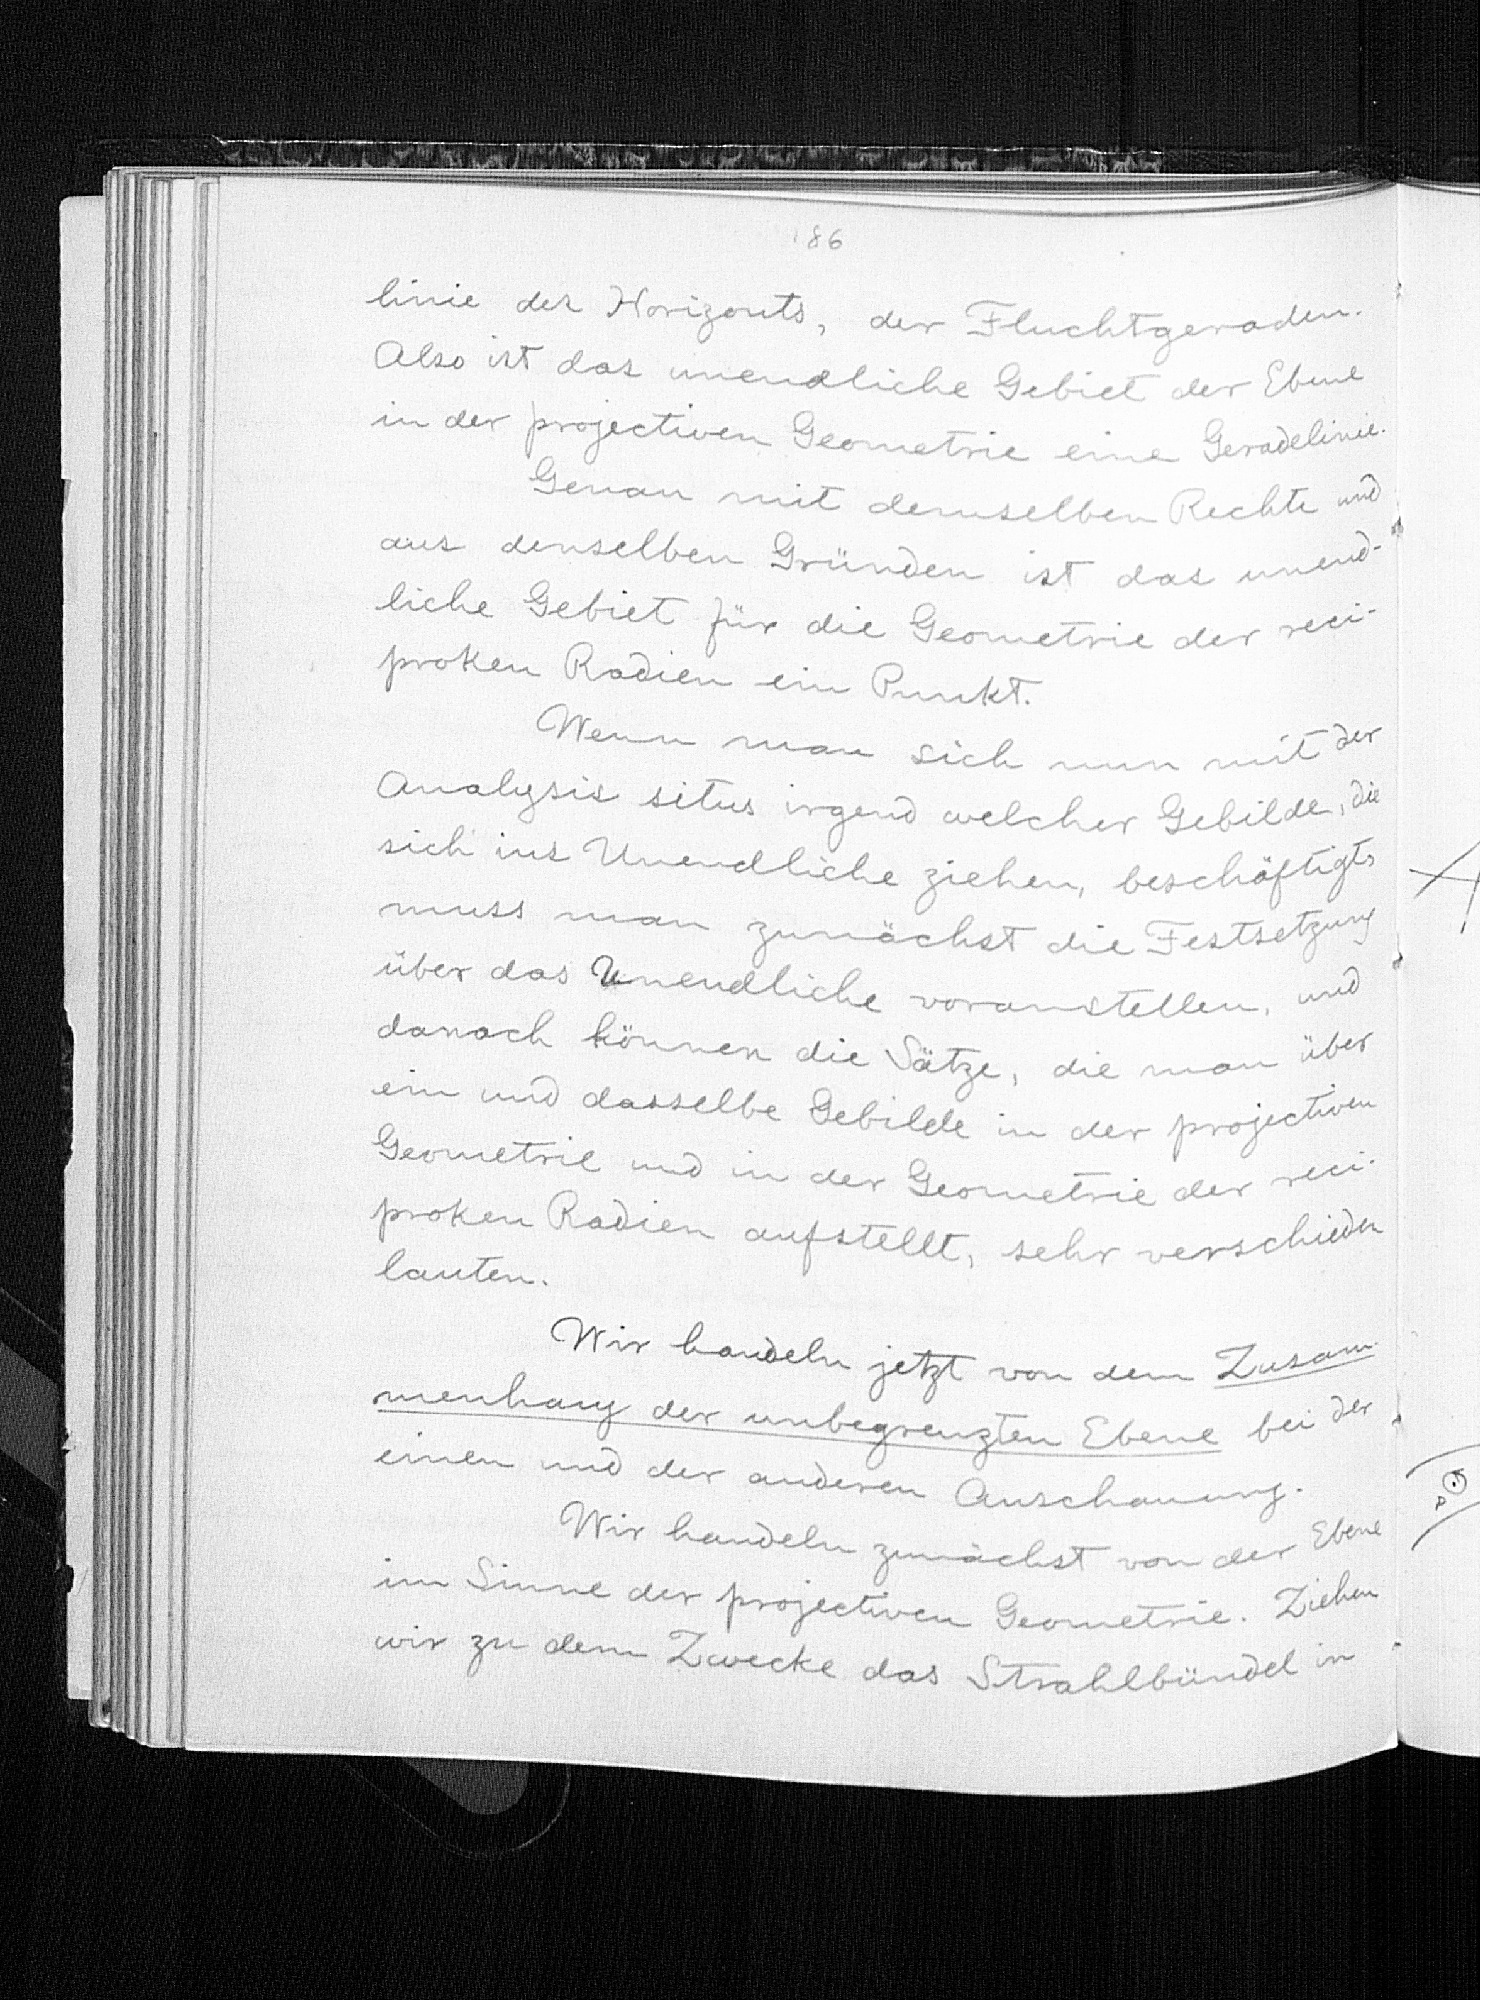 186
linie des Horizonts, der Fluchtgeraden.
Also ist das unendliche Gebiet der Ebene
in der projectiven Geometrie eine Geradelinie.
Genau mit demselben Rechte und
aus denselben Gründen ist das unend-
liche Gebiet für die Geometrie der reci-
proken Radien ein Punkt.
Wenn man sich nun mit der
Analysis situs irgend welcher Gebilde, die
sich ins Unendliche ziehen, beschäftigt,
muss man zunächst die Festsetzung
über das Unendliche voranstellen, und
danach können die Sätze, die man über
ein und dasselbe Gebilde in der projectiven
Geometrie und in der Geometrie der reci-
proken Radien aufstellt, sehr verschieden
lauten.
Wir handeln jetzt von dem Zusam-
menhang der unbegrenzten Ebene bei der
einen und der anderen Anschauung.
Wir handeln zunächst von der Ebene
im Sinne der projectiven Geometrie. Ziehen
wir zu dem Zwecke das Strahlbündel in
P